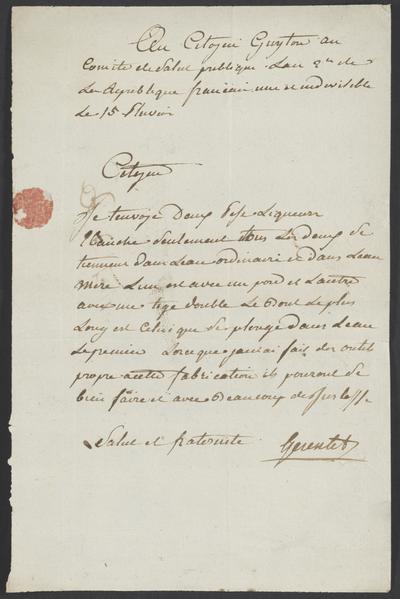 Au Citoyen Guyton au
Comité de Salut publique Lan 3me de
La République française une et indivisible
Le 15 Pluviose
Citoyen
Je tenvoye Deux Pese Liqueurs
Ebauché Seulement tous Les deux Se
tiennent dans Leau ordinaire et dans Leau
mere Lun est avec un poid et Lautre
avec une tige double Le Bout Le plus
Long est Celui que Se plonge dans Leau
Le premier Lorsque jaurai fait des outils
propre a cette fabrication ils pouront Se
bien faire et avec Beaucoup de
Salut et fraternité Gerentet